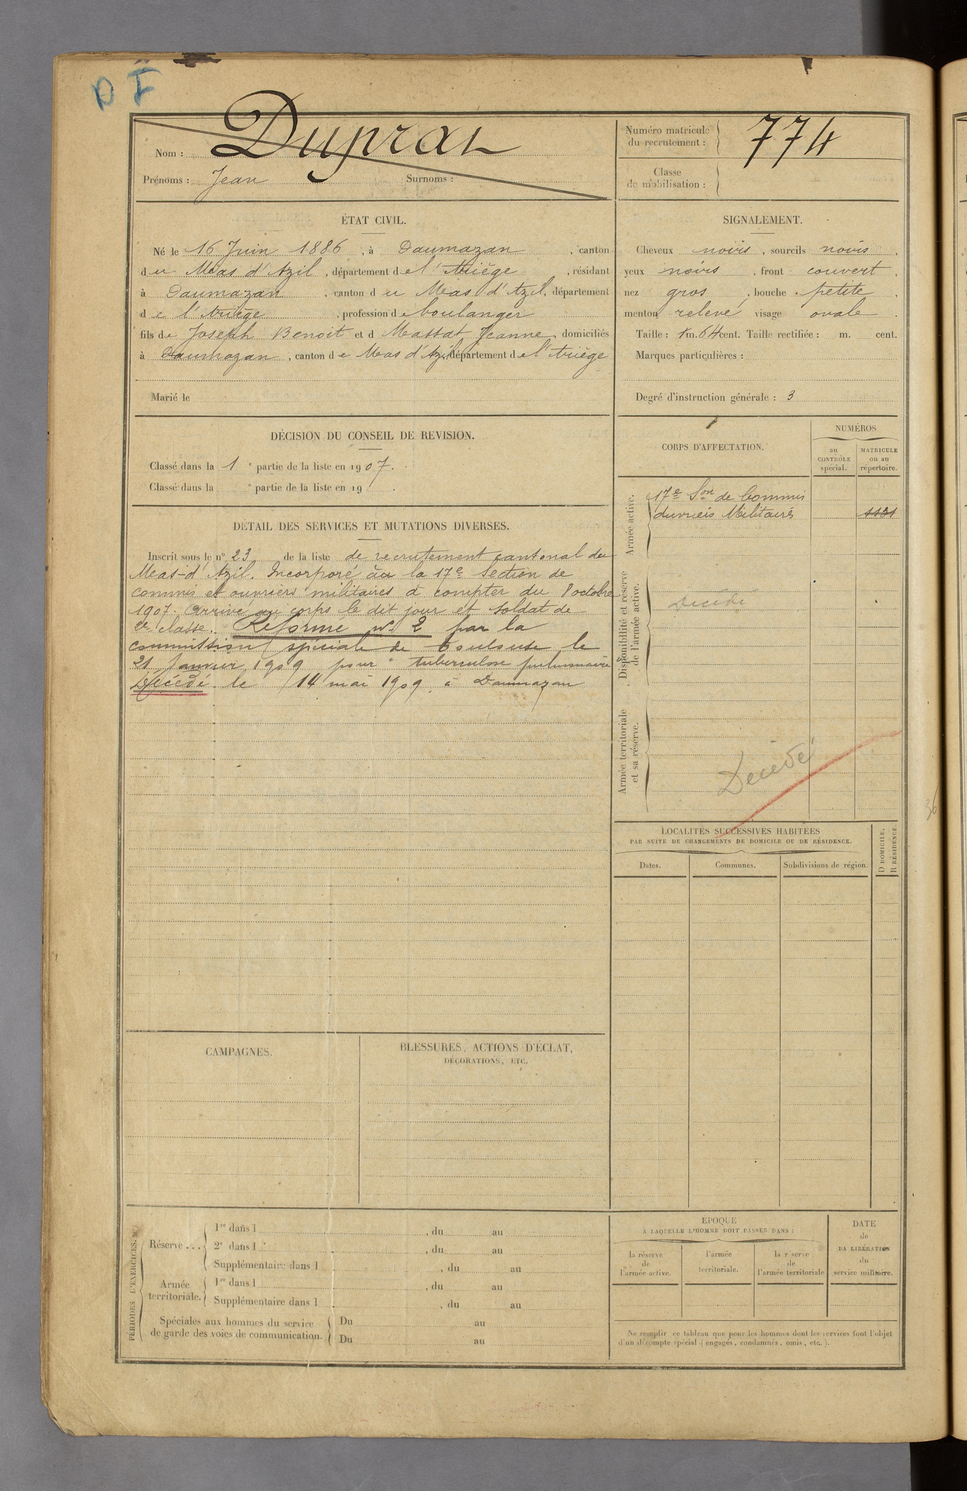 D F
Nom : Duprat
Prénoms : Jean Surnoms :
Numéro matricule du recrutement : 774
Classe de mobilisation :
ÉTAT CIVIL.
Né le 16 Juin 1886, à Daumazan, canton
du Mas d'Azil, département de l'Ariège, résidant
à Daumazan, canton du Mas d'Azil, département
de l'Ariège, profession de boulanger
fils de Joseph Benoit et d Massat Jeanne, domiciliés
à Daumazan, canton de Mas d'Azil, département de l'Ariège
Marié le
SIGNALEMENT.
Cheveux noirs, sourcils noirs,
yeux noirs, front couvert,
nez gros, bouche petite,
menton relevé visage ovale.
Taille : 1m. 64 cent. Taille rectifiée : m. cent.
Marques particulières :
Degré d'instruction générale : 3
DÉCISION DU CONSEIL DE REVISION.
Classé dans la 1e partie de la liste en 1907.
Classé dans la e partie de la liste en 19
DÉTAIL DES SERVICES ET MUTATIONS DIVERSES.
Inscrit sous le n° 23 de la liste de recrutement cantonal du
Mas-d'Azil. Incorporé à la 17e Section de
commis et ouvriers militaires à compter du 8 octobre
1907. Arrivé au corps le dit jour et soldat de
2e classe. Réformé n° 2 par la
commission spéciale de Toulouse le
21 Janvier 1909 pour "tuberculose pulmonaire
Décédé le 14 mai 1909 à Daumazan
CORPS D'AFFECTATION.
NUMÉROS
au CONTRÔLE spécial.
MATRICULE ou au répertoire.
Armée active.
17e Son de Commis
Ouvriers Militaires 1121
Disponibilité et réserve de l'armée active.
Décédé
Armée territoriale et sa réserve.
Décédé
LOCALITÉS SUCCESSIVES HABITÉES
PAR SUITE DE CHANGEMENTS DE DOMICILE OU DE RÉSIDENCE.
Dates. Communes. Subdivisions de région.
D DOMICILE,
R RÉSIDENCE.
CAMPAGNES.
BLESSURES, ACTIONS D'ÉCLAT,
DÉCORATIONS, ETC.
PÉRIODES D'EXERCICES.
Réserve...
1re dans l , du au
2e dans l , du au
Supplémentaire dans l , du au
Armée territoriale.
1re dans l , du au
Supplémentaire dans l , du au
Spéciales aux hommes du service
de garde des voies de communication.
Du au
Du au
ÉPOQUE
À LAQUELLE L'HOMME DOIT PASSER DANS :
la réserve de l'armée active.
l'armée territoriale.
la réserve de l'armée territoriale
DATE
de
LA LIBÉRATION
du
service militaire.
Ne remplir ce tableau que pour les hommes dont les services font l'objet
d'un décompte spécial (engagés, condamnés, omis, etc.).